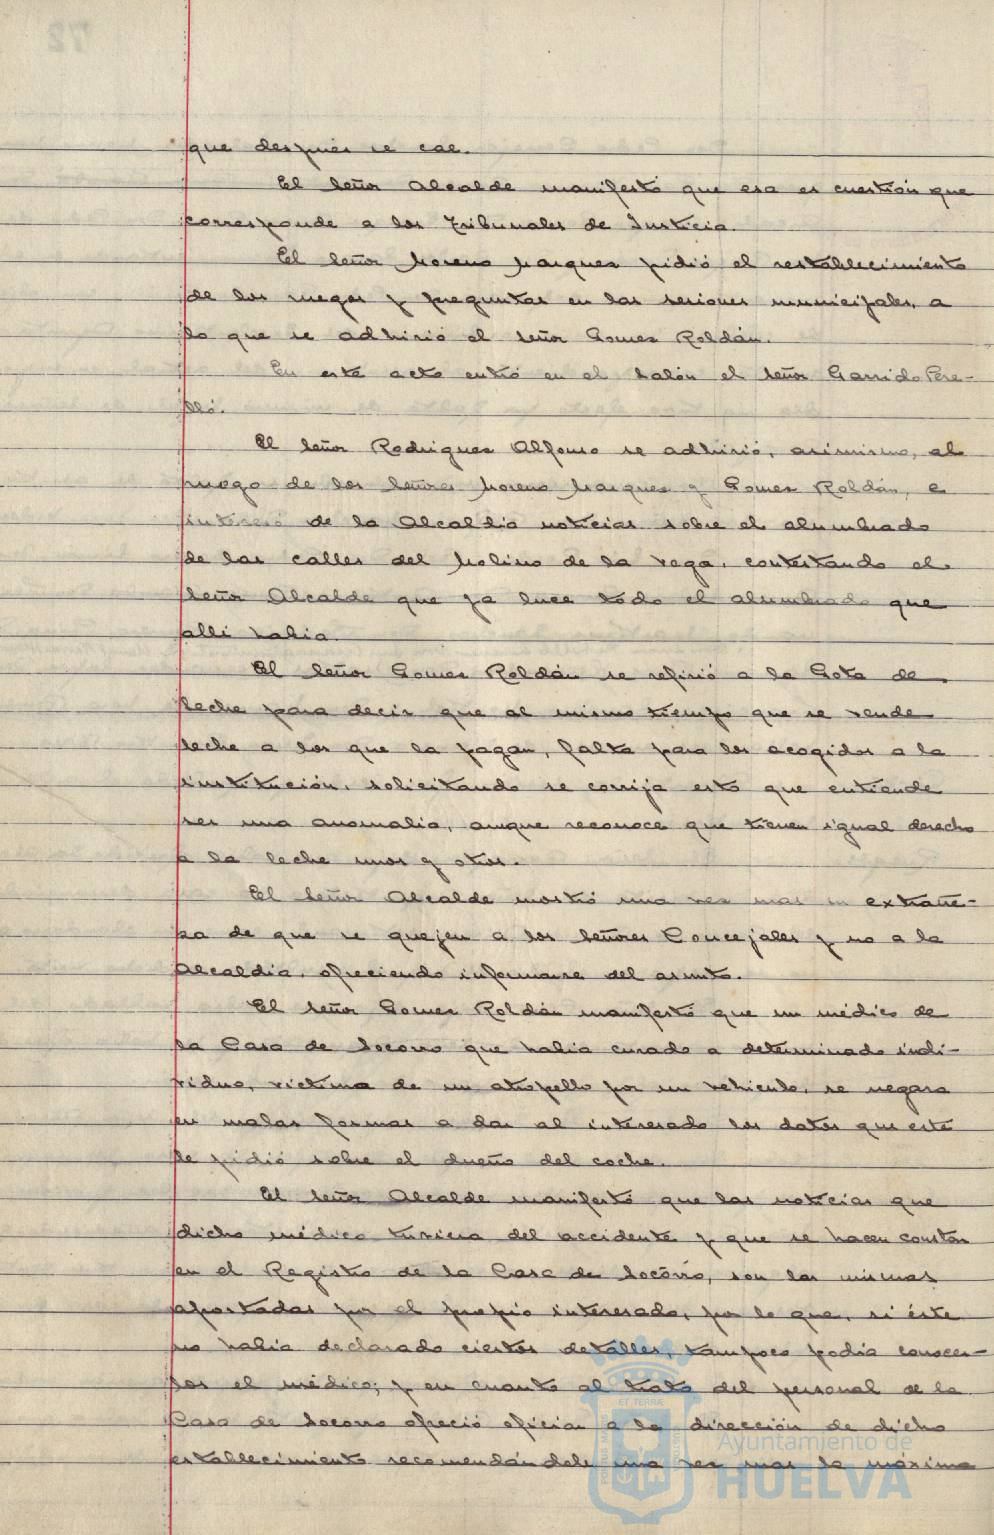 que después se cae.
El señor Alcalde manifestó que esa es cuestión que
corresponde a los Tribunales de Justicia.
El señor Moreno Marquez pidió el restablecimiento
de los ruegos y preguntas en las sesiones municipales, a
lo que se adhirió el señor Gomez Roldán.
En este acto entró en el salón el señor Garrido Pere-
lló.
El señor Rodriguez Alfonso se adhirió, asimismo, al
ruego de los señores Moreno Marquez y Gomez Roldán, e
interesó de la Alcaldia noticias sobre el alumbrado
de las calles del Molino de la Vega, contestando el
señor Alcalde que ya luce todo el alumbrado que
alli habia.
El señor Gomez Roldán se refirió a la Gota de
leche para decir que al mismo tiempo que se vende
leche a los que la pagan, falta para los acogidos a la
institución, solicitando se corrija esto que entiende
ser una anomalia, aunque reconoce que tienen igual derecho
a la leche unos y otros.
El señor Alcalde mostró una vez mas su extrañe-
za de que se quejen a los señores Concejales y no a la
Alcaldia, ofreciendo informarse del asunto.
El señor Gomez Roldán manifestó que un médico de
la Casa de Socorro que habia curado a determinado indi-
viduo, victima de un atropello por un vehiculo, se negara
en malas formas a dar al interesado los datos que este
le pidió sobre el dueño del coche.
El señor Alcalde manifestó que las noticias que
dicho médico tuviera del accidente y que se hacen constar
en el Registro de la Casa de Socorro, son las mismas
aportadas por el propio interesado, por lo que, si éste
no habia declarado ciertos detalles, tampoco podia conocer-
los el médico; y en cuanto al trato del personal de la
Casa de Socorro ofreció oficiar a la dirección de dicho
establecimiento recomendándole una vez mas la máxima
Ayuntamiento de
HUELVA